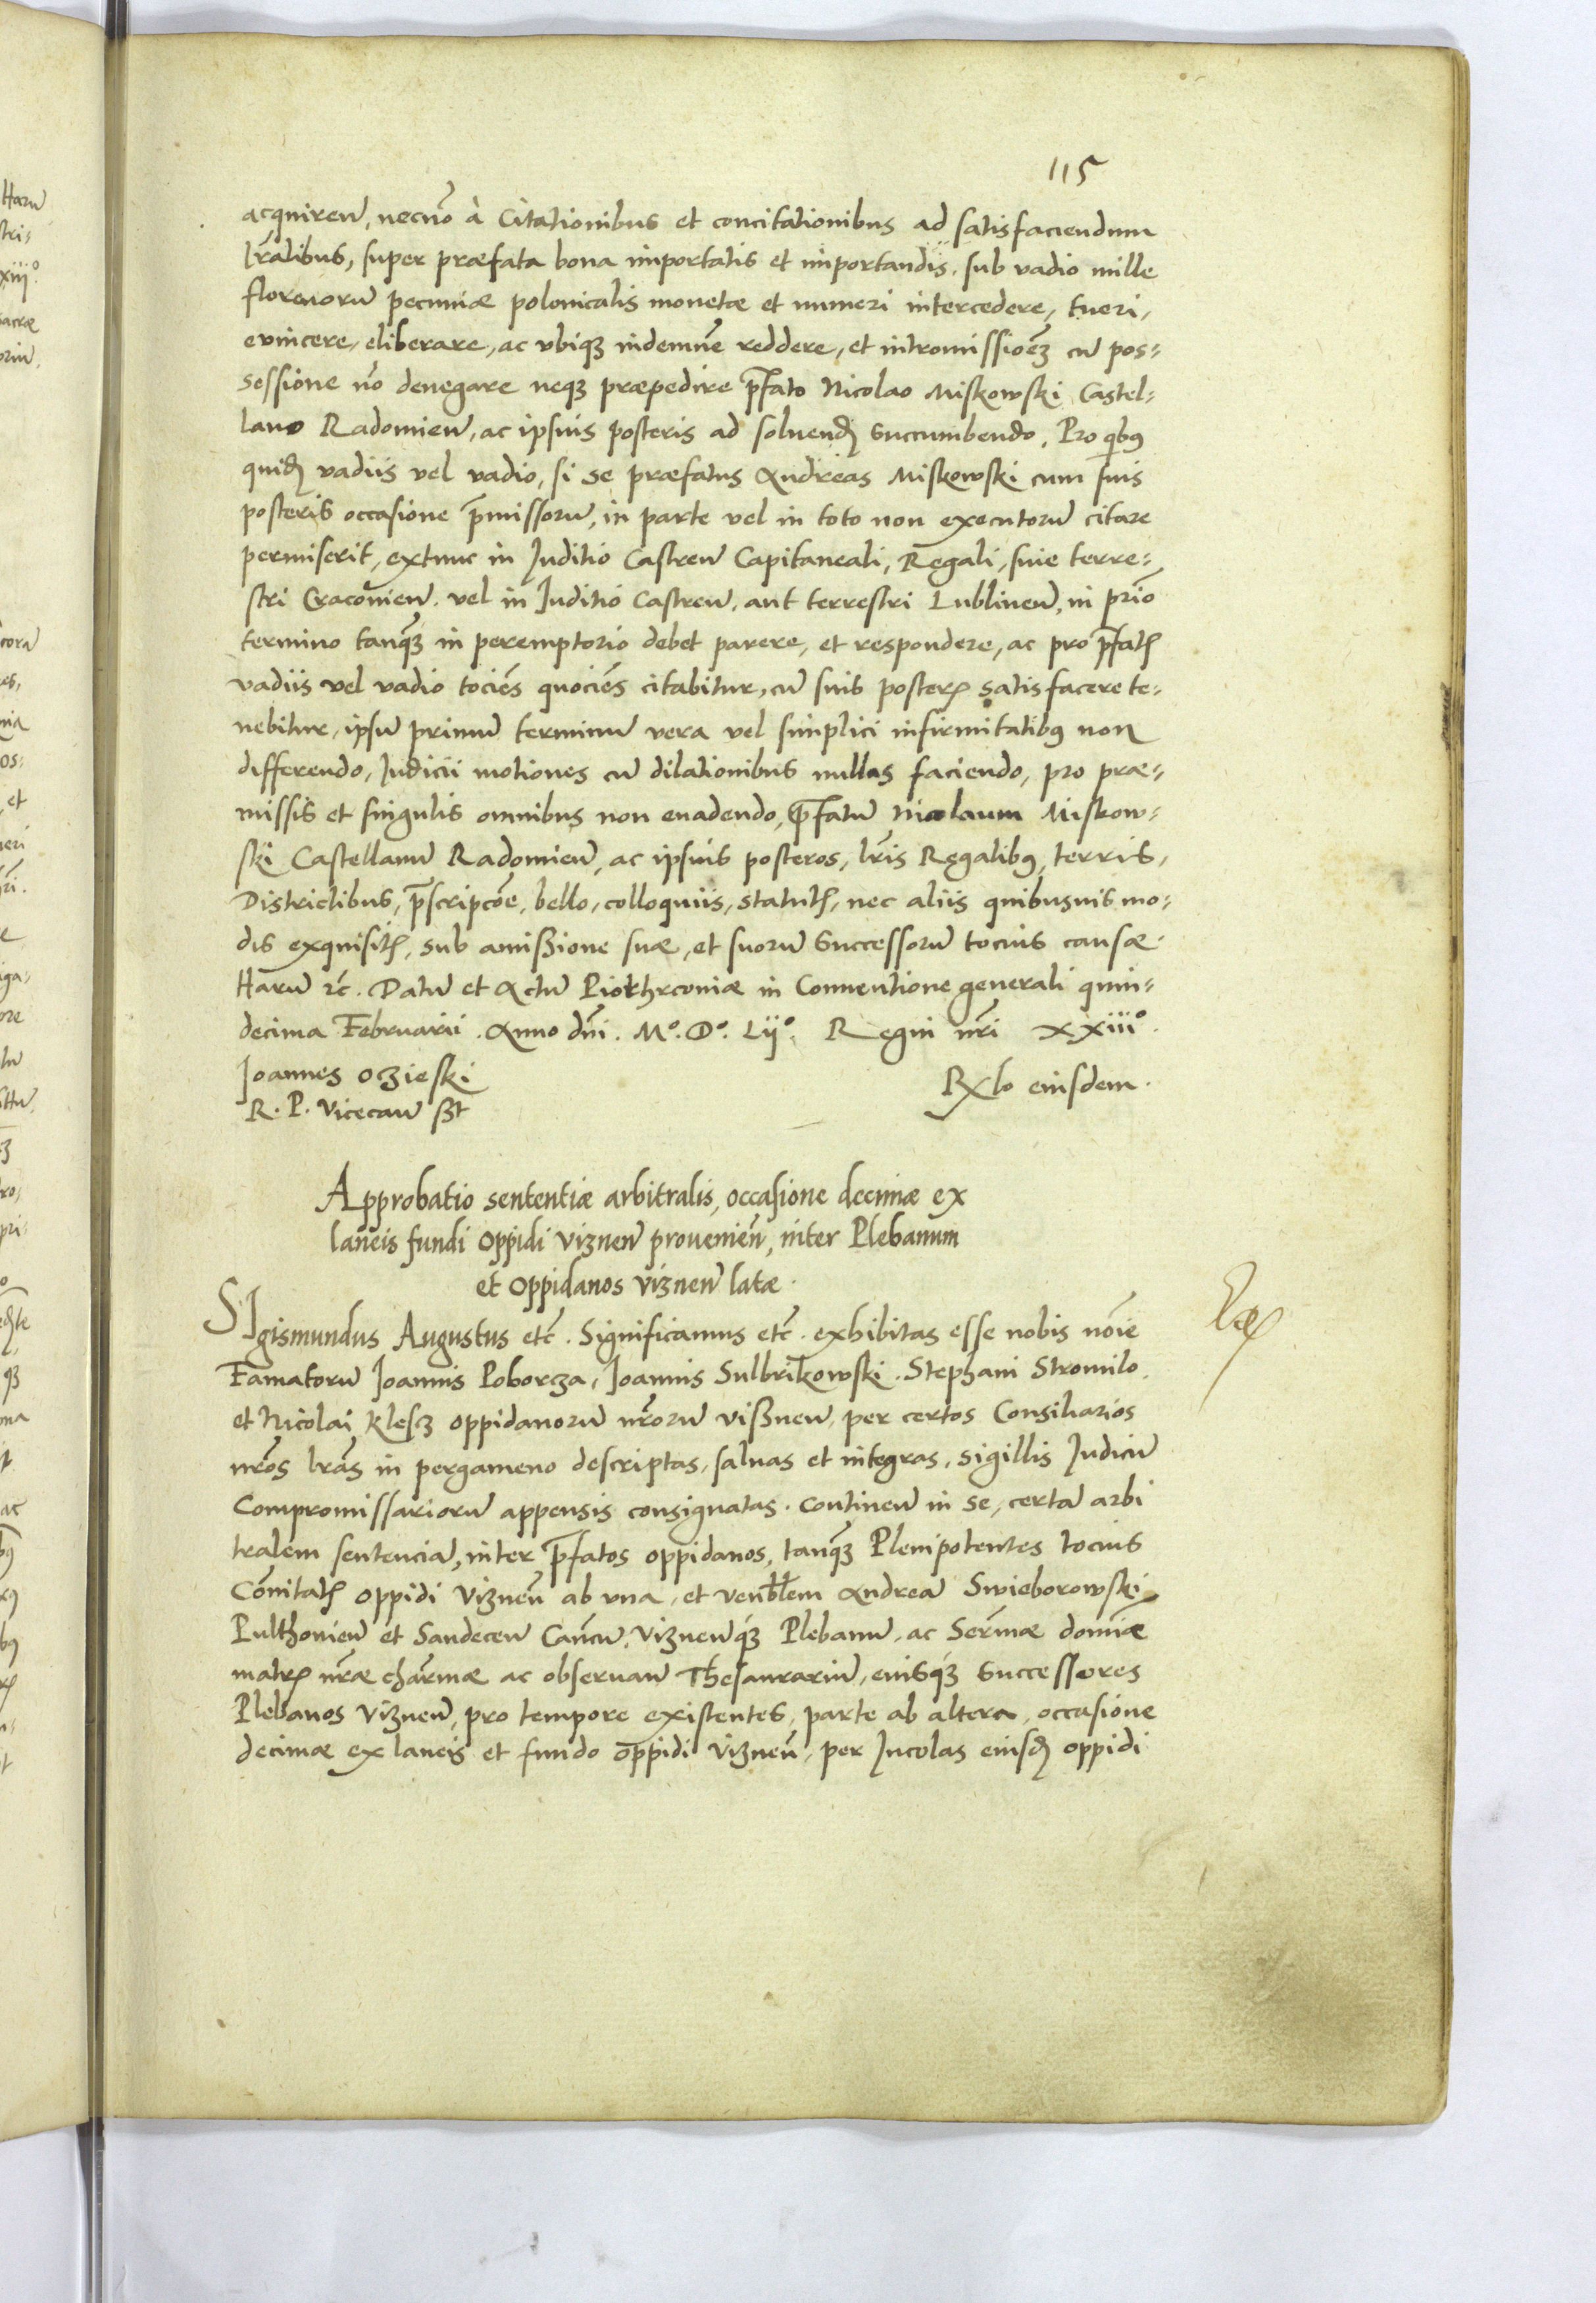 115
acquireñ, necnõ à Citationibus et concitationibus ad satisfaciendum
lr̃alibus, super præfata bona importatis et importandis, sub vadio mille
florenorũ pecuniæ polonicalis monetæ et numeri intercedere, tueri,
evincere, eliberare, ac vbiqꝫ indemnẽ reddere, et intromissioẽꝫ cũ pos-
sessione nõ denegare neqꝫ præpedire p̃fato Nicolao Miskowski Castel-
lano Radomieñ, ac ipsius posteris ad soluenđ succumbendo. Pro qibꝰ
quiđ vadiis vel vadio, si se præfatus Andreas Miskowski cum suis
posteris occasione p̃missorũ, in parte vel in toto non executorũ citare
permiserit, extunc in Juditio Castreñ Capitaneali, Regali, siue terre-
stri Cracouieñ. vel in Juditio Castreñ, aut terrestri Lublineñ, in prĩo
termino tanqꝫ in peremptorio debet parere, et respondere, ac pro p̃fatꝭ
vadiis vel vadio tociẽs quociẽs citabitur, cũ suis posterꝭ satisfacere te-
nebitur, ipsũ primũ terminũ vera vel simplici infirmitatibꝰ non
differendo, Judicii motiones cũ dilationibus nullas faciendo, pro præ-
missis et singulis omnibus non euadendo, p̃fatũ Nicolaum Miskow-
ski Castellanũ Radomieñ, ac ipsius posteros, lr̃is Regalibꝰ, terris,
Districtibus, p̃scripcõe, bello, colloquiis, statutꝭ, nec aliis quibusuis mo-
dis exquisitꝭ, sub amißione suæ, et suorũ successorũ tocius causæ.
Harũ ⁊c̃. Datũ et Actũ Piotrhconiæ in Conuentione generali quin-
decima Februarii. Anno dñi. Mº. Dº. Lijº. Regni nr̃i xxiijº.
Joannes Oczieski
R. P. Vicecañ ßt
Rxlo eiusdem.
Approbatio sententiæ arbitralis, occasione decimæ ex
laneis fundi oppidi Vizneñ prouenieñ, inter Plebanum
et oppidanos Vizneñ latæ.
SJgismundus Augustus etc̃. Significamus etc̃. exhibitas esse nobis nõie
Famatorũ Joannis Poborcza, Joannis Sulbrikowski. Stephani Stromilo.
et Nicolai Klescz oppidanorũ nr̃orũ vißneñ, per certos Consiliarios
nr̃os lr̃as in pergameno descriptas, saluas et integras, sigillis Judicũ
Compromissariorũ appensis consignatas. Contineñ in se, certã arbi
tralem sentenciã, inter p̃fatos oppidanos, tanqꝫ Plenipotentes tocius
Cõmitatꝭ oppidi Vizneñ ab vna, et venbłłem Andreã Swieborowski
Pulthouieñ et Sandeceñ Cañcũ, Vizneñqꝫ Plebanũ, ac Serm̃æ dominæ
matrꝭ nr̃æ charm̃æ ac obseruañ Thesaurariũ, eiusqꝫ successores
Plebanos Vizneñ, pro tempore existentes, parte ab altera, occasione
decimæ ex laneis et fundo oppidi Vizneñ, per Jncolas eiusđ oppidi